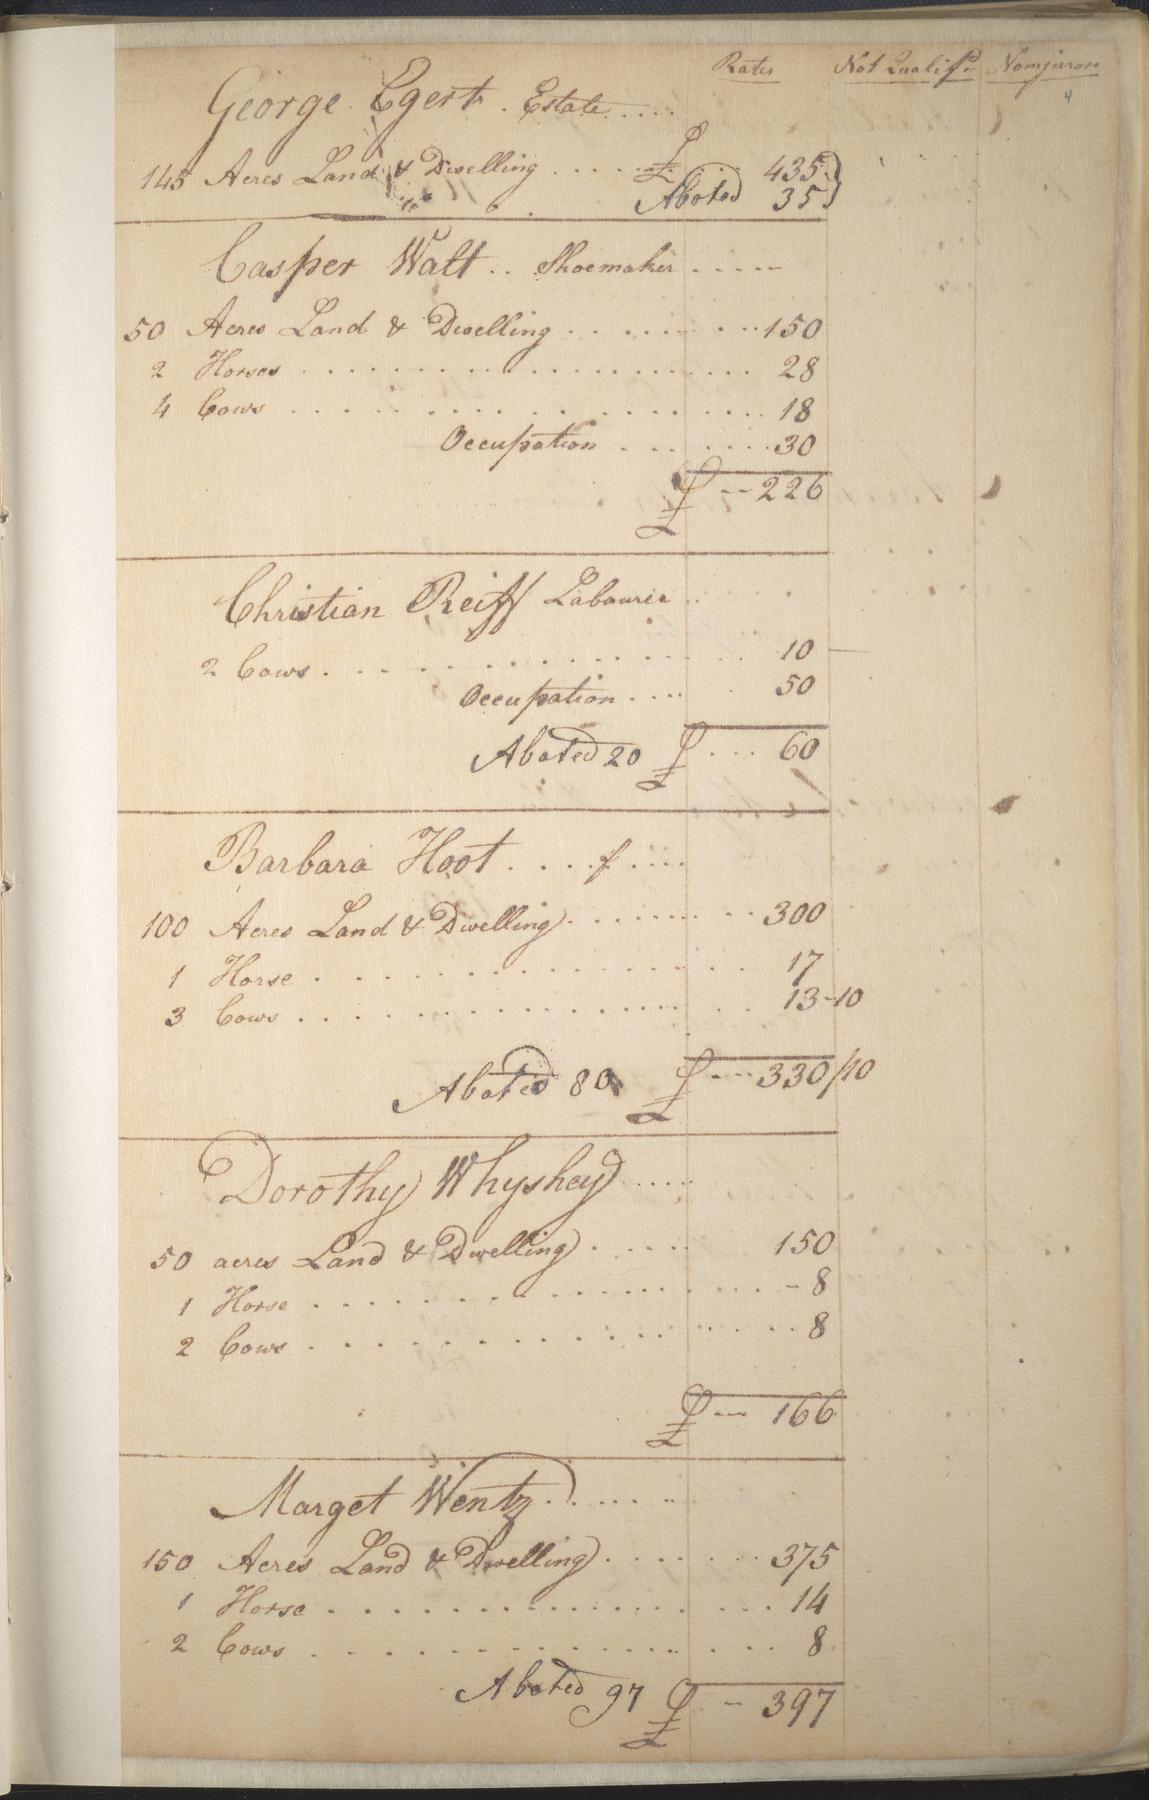 Rates Not Qualifd Nonjurors
4
George Egert Estate .....
145 Acres Land & Dwelling ...... £ .. 435
Abated 35
Casper Walt .. Shoemaker .....
50 Acres Land & Dwelling ......... 150
2 Horses .................... 28
4 Cows .................... 18
Occupation ........ 30
£ -- 226
Christian Reiff Labourer ..
2 Cows ............... 10 —
Occupation .... 50
Abated 20 £ ... 60
Barbara Hoot .... f ....
100 Acres Land & Dwelling ......... 300
1 Horse .................. 17
3 Cows .................. 13-10
Abated 80 £ --- 330/10
Dorothy Whyshey .....
50 acres Land & Dwelling ..... 150
1 Horse .................. - 8
2 Cows .................. 8
£ -- 166
Marget Wentz ......
150 Acres Land & Dwelling ........ 375
1 Horse ................. 14
2 Cows ................. 8
Abated 97 £ - 397